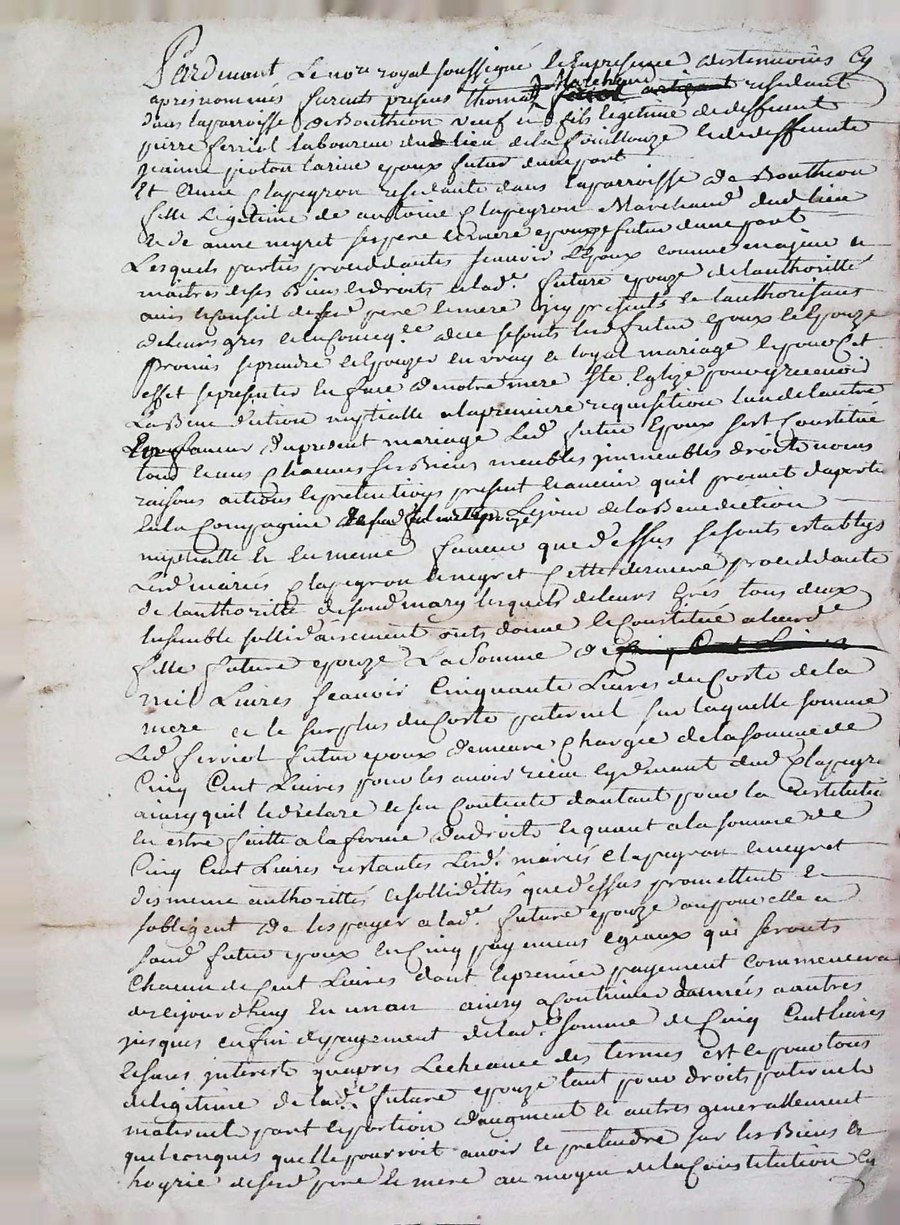 Pardevant Le nore royal soussigné & En presence des temoins Cy
apres nommés furents presens thomas ferriol Marchand residant
dans la parroisse de Bouthéon veuf et fils legitime de deffunt
pierre ferriol laboureur du lieu de la fouillouze & de deffunte
jeanne poton larine epoux futur d'une part
Et Anne Clapeyron residante dans la parroisse de Bouthéon
fille Legitime de antoine Clapeyron Marchand dud lieu
& de anne neyret ses pere & mere epouse future d'une part
Lesquels parties proceddantes sçavoir L'Epoux comme majeur &
maitre de ses Biens & droits & lade future epouze de l'authoritté
avis & conseil de sesd pere & mere icy presents & l'authorisant
de leurs gres & la Concqe ce se sonts lesd futur epoux & Epouze
promis se prendre & Epouzer en vray & loyal mariage & pour Cet
effet se presenter en face de notre mere Ste Eglize pour y recevoir
La Bene diction nuptialle a la premiere requisition l'un de l'autre
En faveur du present mariage Led futur Epoux s'est Constitué
tous & uns Chacuns ses Biens meubles immeubles droits noms
raisons actions & pretentions present & avenir qu'il promet d'aporter
En la Compagnie Le jour de la Benediction
nuptialle & En meme faveur que dessus se sonts establys
Lesd mariés Clapeyron & neyret Cette derniere proceddante
de l'authoritté de sond mary lesquels de leurs grés tous deux
Ensemble sollidairement onts donné & Constitué a leurde
fille future epouze La Somme de
mil Livres sçavoir Cinquante Livres du Coste de la
mere et le surplus du Coste paternel sur laquelle somme
Led ferriol futur epoux demeure Chargée de la somme de
Cinq Cent Livres pour les avoir reçue cy devant dud Clapeyron
ainsy qu'il le declare & s'en Contente d'autant pour la restitution
En estre faitte a la forme du droit & quant a la somme de
Cinq Cent Livres restantes Lesd mariés Clapeyron & neyret
des meme authorittés & solliditté que dessus promettent &
s'obligent de les payer a lade future epouze ou pour elle a
sond futur epoux en Cinq payemens egaux qui seronts
Chacun de Cent Livres dont le premier payement commencera
de cejourd'huy En un an ainsy a Continuer d'années a autres
jusques en fin de payement de lade somme de Cinq Cent Livres
& sans interests qu'apres L'echeance des termes est ce pour tous
de legitime de lade future epouze tant pour droits paternels
maternels part & portion d'augment & autres generallement
quelconques quelle pourroit avoir & pretendre sur les Biens &
hoyrie de sesd pere & mere au moyen de la Constitution Cy